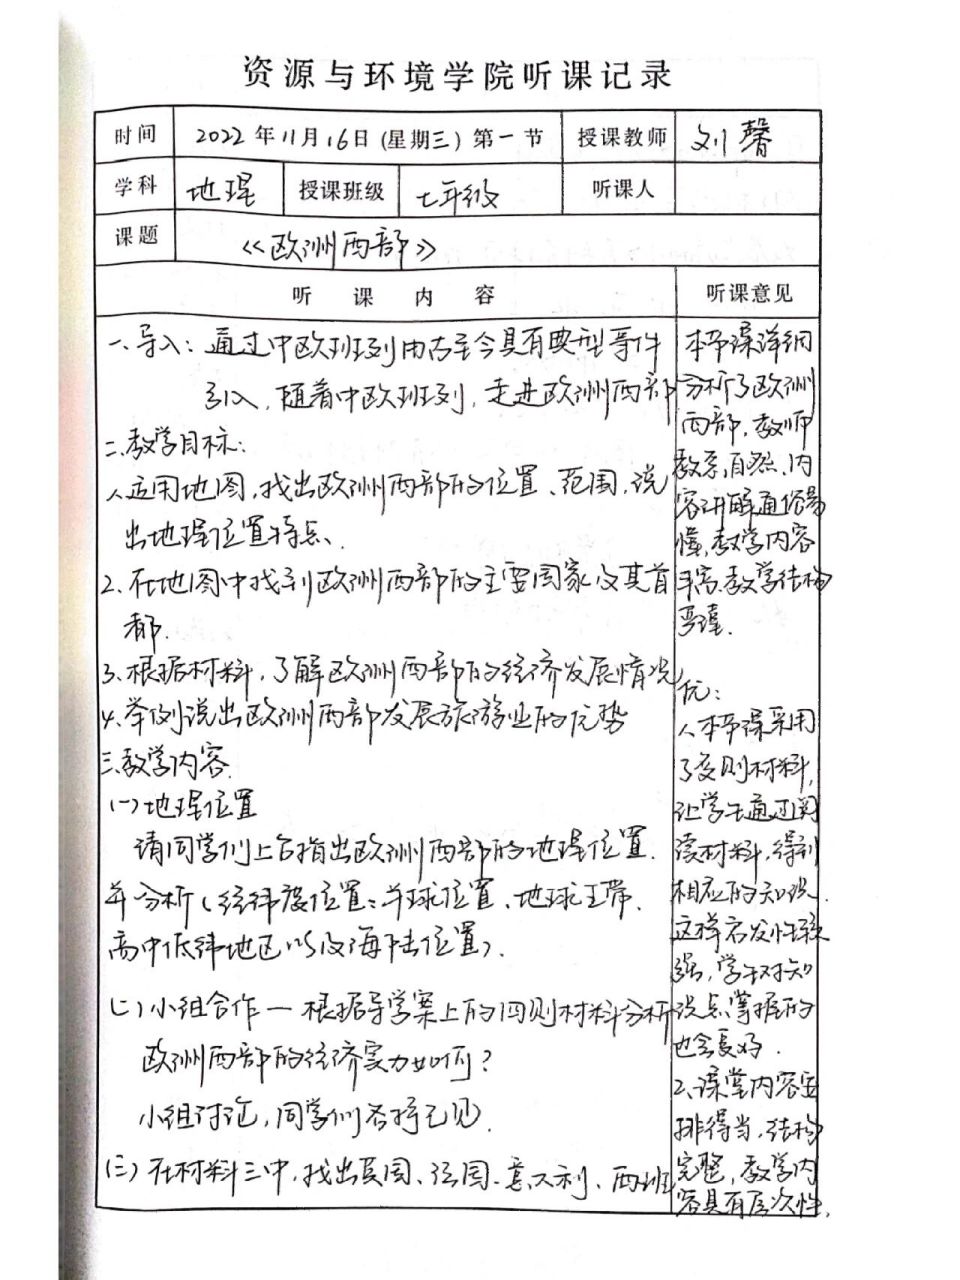 资源与环境学院听课记录
时间 2022年11月16日(星期三)第一节 授课教师 刘馨
学科 地理 授课班级 七年级 听课人
课题 《欧洲西部》
听课内容 听课意见
一、导入：通过中欧班列由古至今具有典型事件
引入，随着中欧班列，走进欧洲西部
二、教学目标：
1.运用地图，找出欧洲西部的位置、范围，说
出地理位置特点、
2.在地图中找到欧洲西部的主要国家及其首
都.
3.根据材料，了解欧洲西部的经济发展情况
4.举例说出欧洲西部发展旅游业的优势
三、教学内容
(一)地理位置
请同学们上台指出欧洲西部的地理位置.
并分析(经纬度位置：半球位置、地球五带、
高中低纬地区以及海陆位置)
(二)小组合作—根据导学案上的四则材料分析
欧洲西部的经济实力如何？
小组讨论，同学们各抒己见
(三)在材料三中，找出英国、法国、意大利、西班
本节课详细
分析了欧洲
西部，教师
教态自然、内
容讲解通俗易
懂，教学内容
丰富、教学结构
严谨.
优：
1.本节课采用
了变则材料，
让学生通过阅
读材料，得到
相应的知识.
这样启发性较
强，学生对知
识点掌握的
也会更好.
2.课堂内容安
排得当，结构
完整，教学内
容具有层次性，